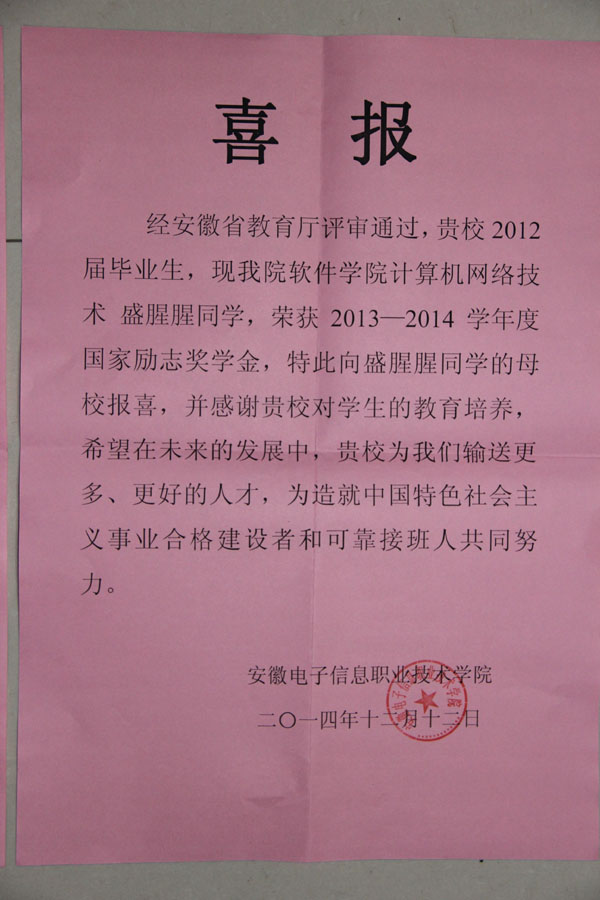 喜 报
经安徽省教育厅评审通过，贵校 2012
届毕业生，现我院软件学院计算机网络技
术 盛腥腥同学，荣获 2013—2014 学年度
国家励志奖学金，特此向盛腥腥同学的母
校报喜，并感谢贵校对学生的教育培养，
希望在未来的发展中，贵校为我们输送更
多、更好的人才，为造就中国特色社会主
义事业合格建设者和可靠接班人共同努
力。
安徽电子信息职业技术学院
二〇一四年十二月十二日